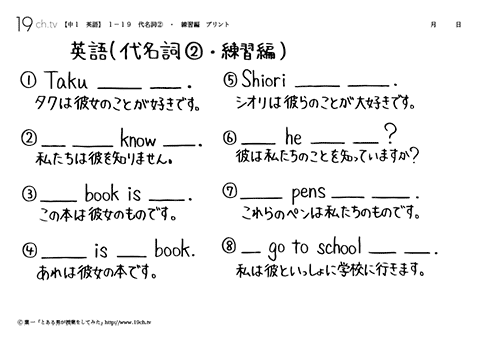 19ch.tv 【中1 英語】 1－19 代名詞② ・ 練習編 プリント 月 日
英語(代名詞②・練習編)
① Taku ____ ____.
タクは彼女のことが好きです。
② __ ____ know ____.
私たちは彼を知りません。
③ ____ book is ____.
この本は彼女のものです。
④ ____ is ___ book.
あれは彼女の本です。
⑤ Shiori ____ ____.
シオリは彼らのことが大好きです。
⑥ ____ he ____ ___?
彼は私たちのことを知っていますか?
⑦ ____ pens ____ ____.
これらのペンは私たちのものです。
⑧ __ go to school ____ ___.
私は彼といっしょに学校に行きます。
© 葉一「とある男が授業をしてみた」http://www.19ch.tv